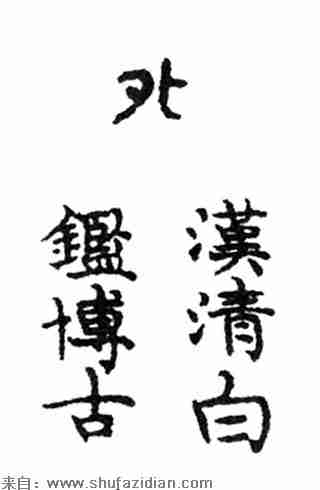 外
漢清白
鑑博古
来自：www.shufazidian.com